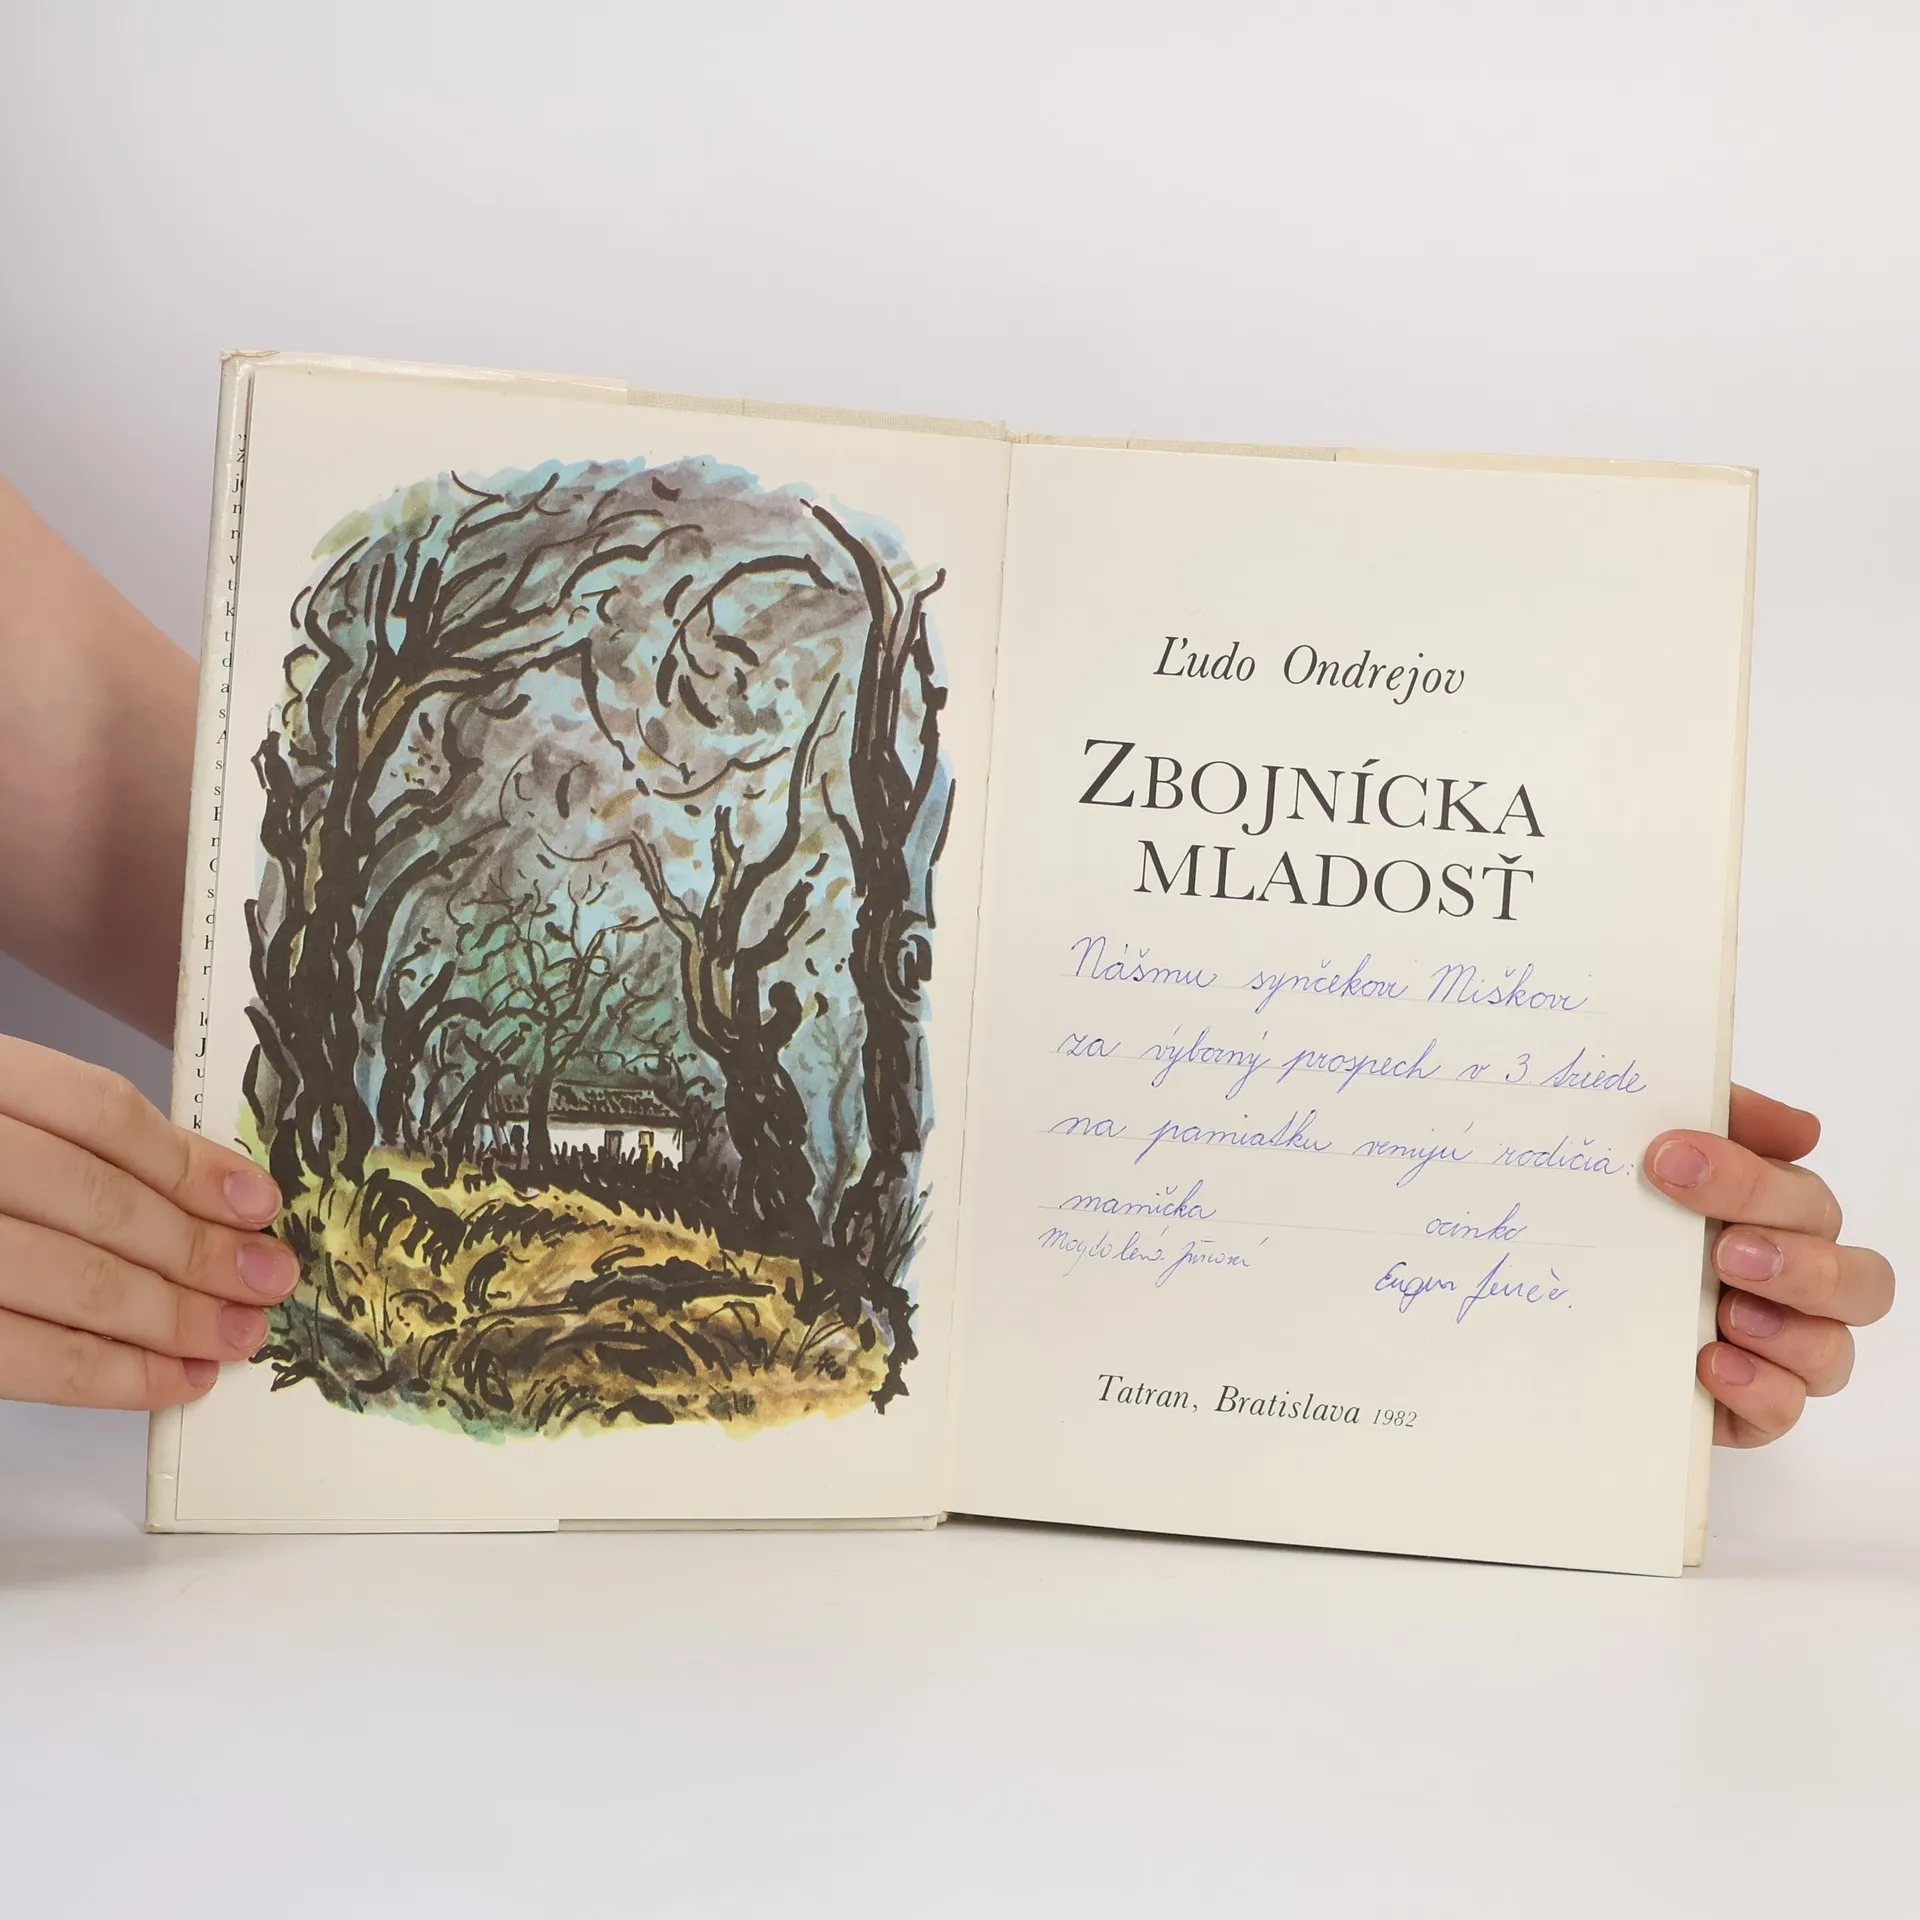 Ľudo Ondrejov
ZBOJNÍCKA
MLADOSŤ
Nášmu synčekovi Miškovi
za výborný prospech v 3 triede
na pamiatku venujú rodičia:
mamička ocinko
Tatran, Bratislava 1982